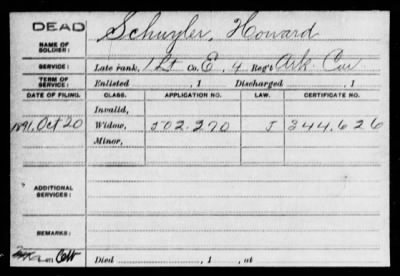 DEAD
NAME OF SOLDIER: Schuyler, Howard
SERVICE: Late rank, 1 Lt Co. E, 4 Reg't Ark. Cav
TERM OF SERVICE: Enlisted , 1 Discharged , 1
DATE OF FILING. CLASS. APPLICATION NO. LAW. CERTIFICATE NO.
Invalid,
1891, Oct 20 Widow, 502.270 J 344,626
Minor,
ADDITIONAL SERVICES:
REMARKS:
Died , 1 , at